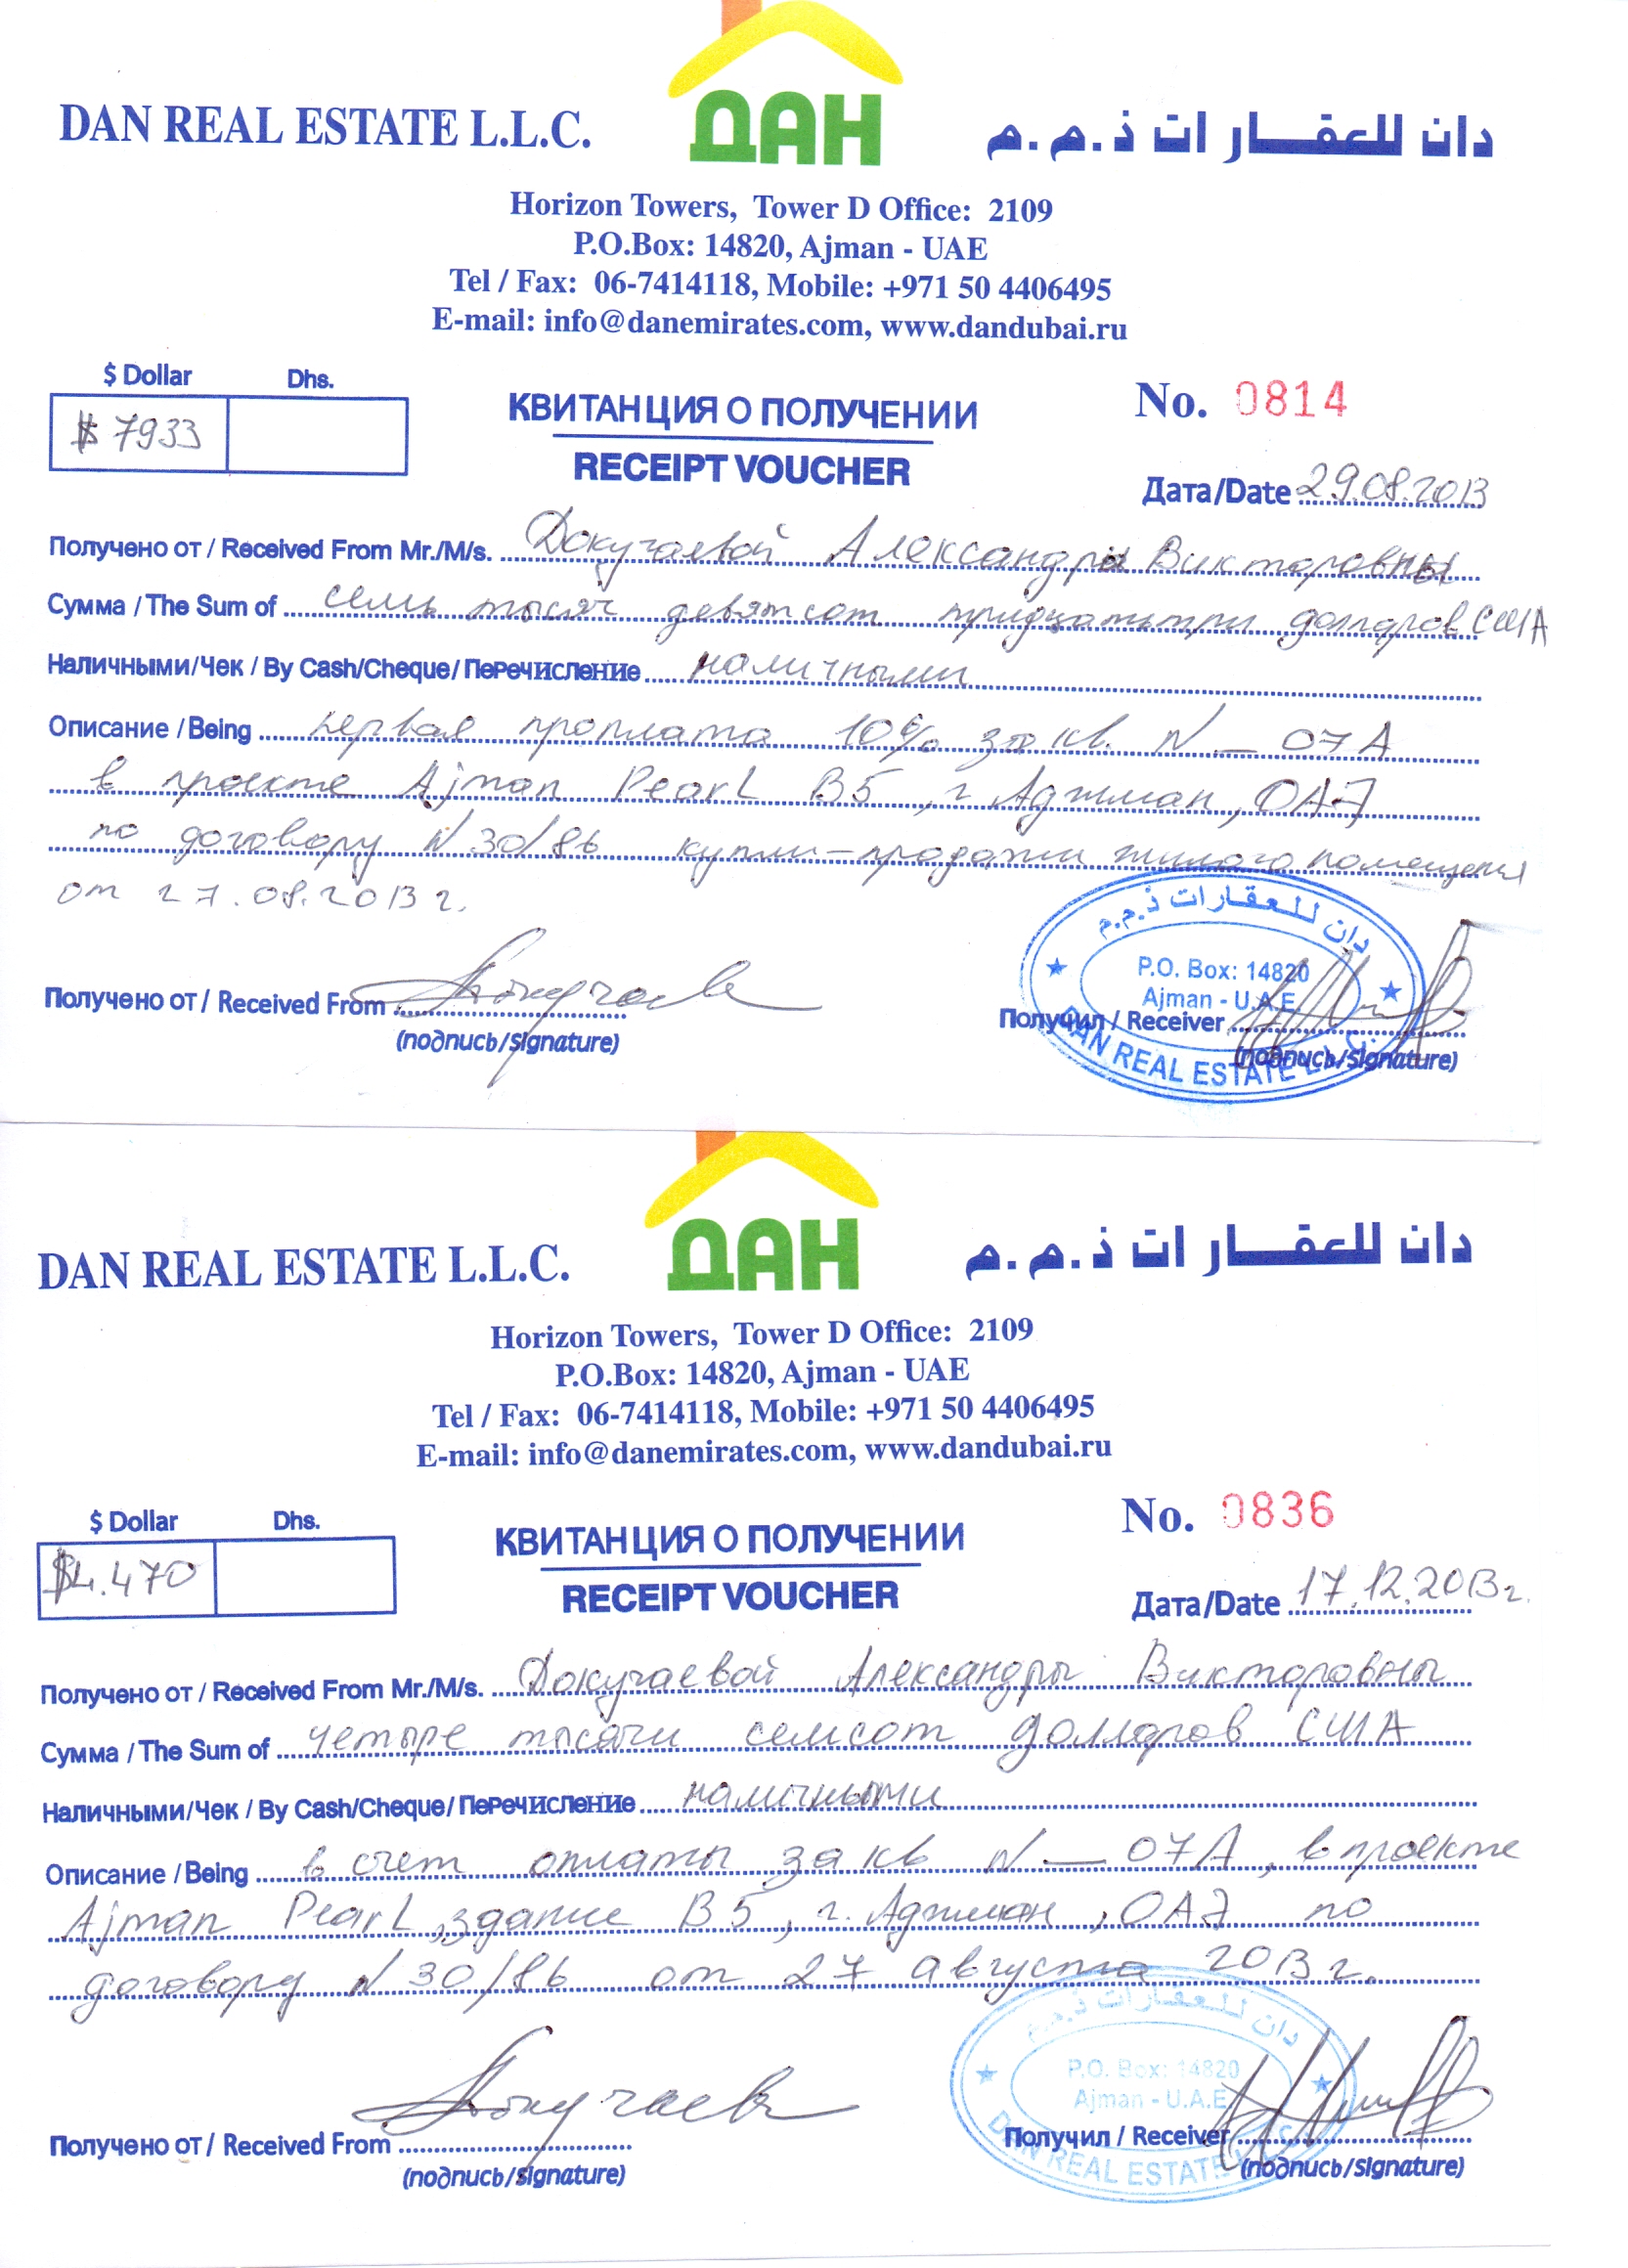 DAN REAL ESTATE L.L.C. ДАН دان للعقارات ذ.م.م
Horizon Towers, Tower D Office: 2109
P.O.Box: 14820, Ajman - UAE
Tel / Fax: 06-7414118, Mobile: +971 50 4406495
E-mail: info@danemirates.com, www.dandubai.ru
$ Dollar Dhs.
$ 7933
КВИТАНЦИЯ О ПОЛУЧЕНИИ
RECEIPT VOUCHER
No. 0814
Дата/Date 29.08.2013
Получено от / Received From Mr./M/s. Докучаевой Александры Викторовны
Сумма / The Sum of семь тысяч девятсот тридцать три долларов США
Наличными/Чек / By Cash/Cheque/ Перечисление наличными
Описание / Being первая проплата 10% за кв. N — 07A
в проекте Ajman Pearl B5, г. Аджман, ОАЭ
по договору N 30/86 купли-продажи жилого помещения
от 27.08.2013 г.
دان للعقارات ذ.م.م
P.O. Box: 14820
Ajman - U.A.E.
DAN REAL ESTATE L.L.C.
Получено от / Received From Докучаев
(подпись/signature)
Получил / Receiver
(подпись/signature)
DAN REAL ESTATE L.L.C. ДАН دان للعقارات ذ.م.م
Horizon Towers, Tower D Office: 2109
P.O.Box: 14820, Ajman - UAE
Tel / Fax: 06-7414118, Mobile: +971 50 4406495
E-mail: info@danemirates.com, www.dandubai.ru
$ Dollar Dhs.
$4.470
КВИТАНЦИЯ О ПОЛУЧЕНИИ
RECEIPT VOUCHER
No. 0836
Дата/Date 17.12.2013 г.
Получено от / Received From Mr./M/s. Докучаевой Александры Викторовны
Сумма / The Sum of четыре тысячи семсот долларов США
Наличными/Чек / By Cash/Cheque/ Перечисление наличными
Описание / Being в счет оплаты за кв N — 07A, в проекте
Ajman Pearl, здание B5, г. Аджман, ОАЭ по
договору N 30/86 от 27 августа 2013 г.
دان للعقارات ذ.م.م
P.O. Box: 14820
Ajman - U.A.E.
DAN REAL ESTATE L.L.C.
Получено от / Received From Докучаев
(подпись/signature)
Получил / Receiver
(подпись/signature)